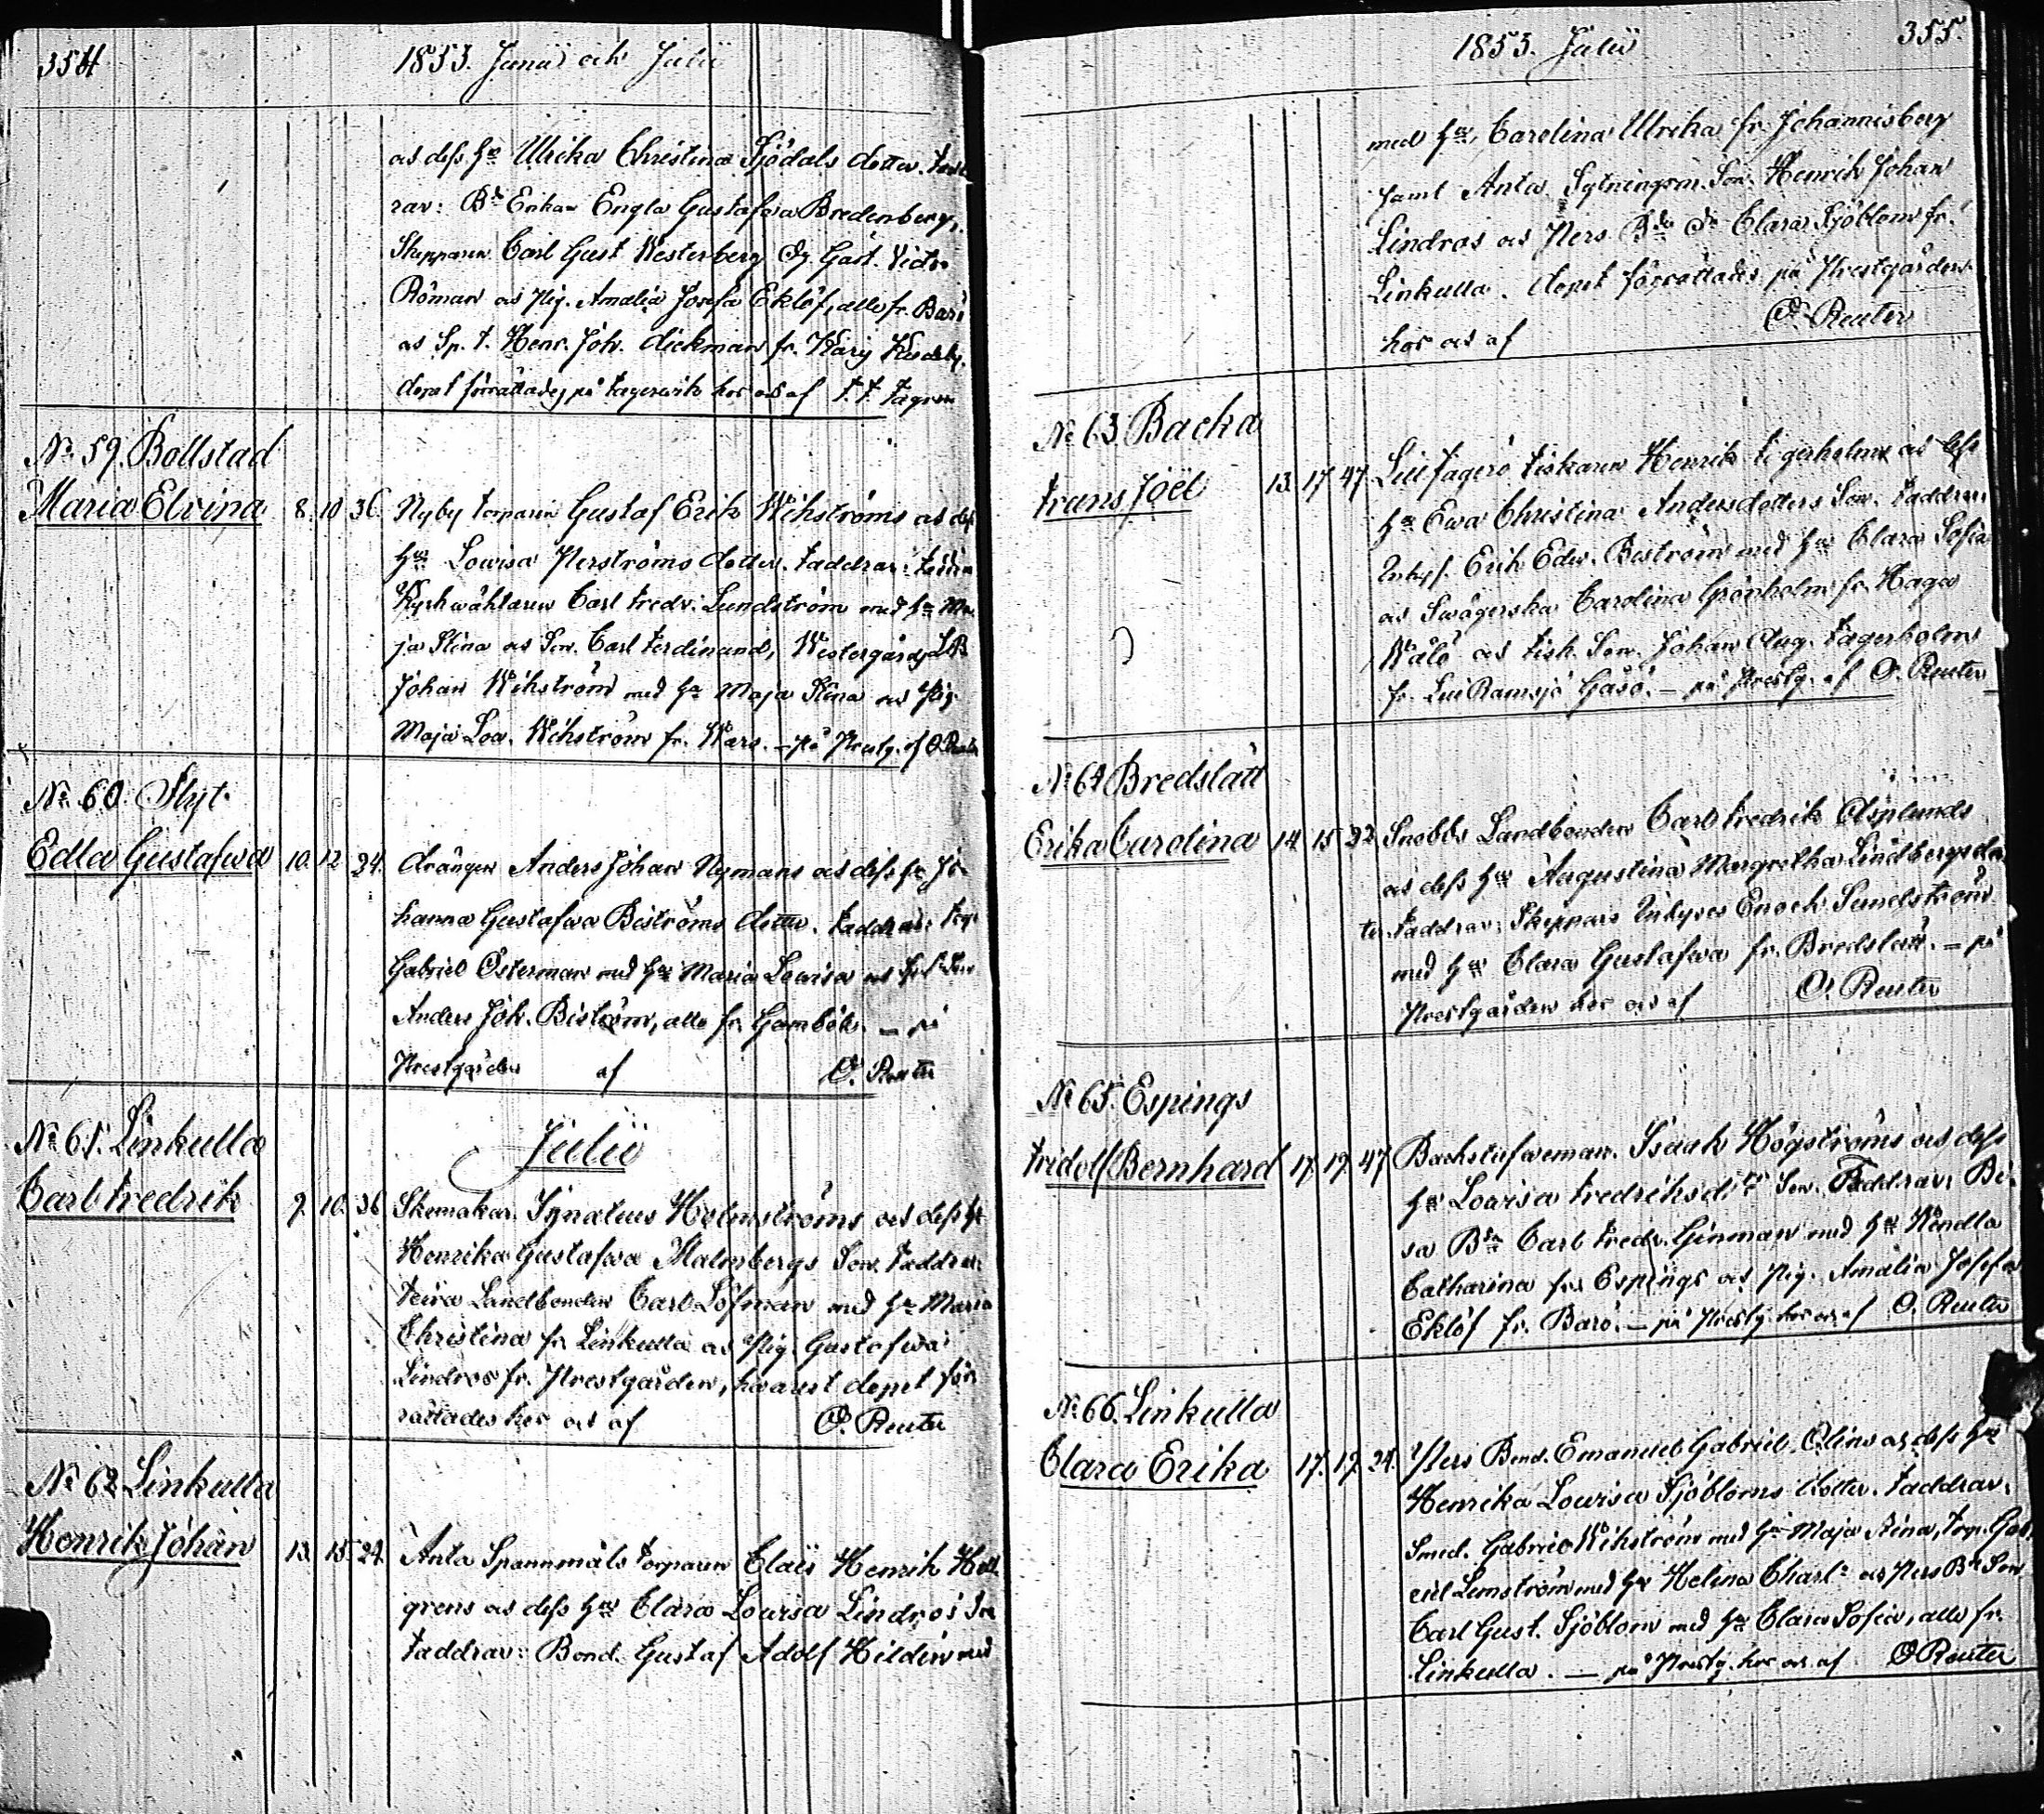 354
1853. Junii och Julii
as dess h. Ulrika Christina Sjödals dotter.
rar: Enkan Engla Gustafwa Bredenberg,
Skepparen Carl Gust Westerberg Gast. Victor
Röman as Pig. Amalia Josefa Eklöf, alle fr. Barö
as Sp. t. Henr. Joh. Aickman fr.
dopet förrättades på Fagerwik hos as af
No. 59. Bollstad
Maria Elvina 8. 10 36. Nyby torparen Gustaf Erik Wihströms as dess
hu Lowisa Perströms dotter. Faddrar:
Kyrkwäktaren Carl Fredr. Lundström med hu Ma
ja Stina as Son. Carl Ferdinand, Westergårds
Johan Wihström med hu Maja Stina as Pig.
Maja Low. Wihström fr. Wars. – på Prestg. af O. Reuter
No. 60. Slyt.
Edla Gustafwa 10. 12. 24. drängen Anders Johan Nymans as dess hu Jo
hanna Gustafwa Biströms dotter. Faddrar: Torp.
Gabriel Österman med hu Maria Lowisa as
Anders Joh. Biström, alle fr. Gambök. – på
Prestgården af O. Reuter
Julii
No. 61. Linkulla
Carl Fredrik 7. 10. 36 Skomakar. Ignatius Holmströms as dess hu
Henrika Gustafwa Malmbergs Son. Faddrar:
Landbonden Carl Löfman med hu Maria
Christina fr. Linkulla as Pig. Gustafwa
Lindros fr. Prestgården, hwarest dopet för
rättades hos as af O. Reuter
No. 62 Linkulla
Henrik Johan 13. 15. 24. Anta Spannmåls torparen Claës Henrik
grens as dess hu Clara Lowisa Lindros
Faddrar: Bond. Gustaf Adolf Hildén med
1853. Julii
355.
med hu, Carolina Ulrika fr. Johannisberg
samt Anta Sytningsm. Son. Henrik Johan
Lindros as Pers Clara Sjöblom fr.
Linkulla. dopet förrättades på Prestgården
hos as af O. Reuter
No. 63. Backa
Frans Joël 13. 17. 47 Lill Fagerö fiskaren Henrik Figerholms as dess
hu Ewa Christina Andersdotters Son. Faddrar:
Inhys. Erik Edw. Biström med hu Clara Sofia
as Swägerska Carolina Grönholm fr. Haga
Walö as Fisk. Son. Johan Aug. Fagerholm
fr. Lill Ramsjö Gåsö. – på Prestg. af O. Reuter
No. 64 Bredslätt
Erika Carolina 14. 15 22. Snebbs Landbonden Carl Fredrik Asplunds
as dess hu Augustina Margretha Lindbergs dot
ter. Faddrar: Skeppars Inhyses Enoch Sundström
med hu Clara Gustafwa fr. Bredslätt. – på
Prestgården hos as af O. Reuter
No. 65. Espings
Fridolf Bernhard 17. 19. 47 Backstufweman. Isaak Högströms as dess
hu Lowisa Fredriksdtr Son. Faddrar:
Carl Fredr. Ginman med hu Wendla
Catharina fr. Espings as Pig. Amalia Josefa
Eklöf fr. Barö. – på Prestg. hos as af O. Reuter
No. 66. Linkulla
Clara Erika 17. 19. 24. Pers Bond. Emanuel Gabriel Olins as dess hu
Henrika Lowisa Sjöbloms dotter. Faddrar:
Smed. Gabriel Wihström med hu Maja Stina, torp. Gab
riel Lemström med hu Helena Charl. as Pers Bds Son
Carl Gust. Sjöblom med hu Clara Sofia, alle fr.
Linkulla. – på Prestg. hos as af O. Reuter